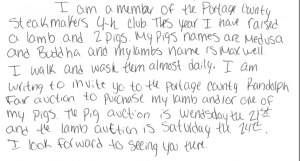 I am a member of the Portage County
Steakmakers 4-h club This year I have raised
a lamb and 2 pigs. My pigs names are Medusa
and Buddha and my lambs name is Maxwell
I walk and wash them almost daily. I am
writing to invite yo to the portage county Randolph
Fair auction to purchase my lamb and/or one of
my pigs. The pig auction is wendsday the 21st
and the lamb auction is Saturday the 24th.
I look forward to seeing you there.